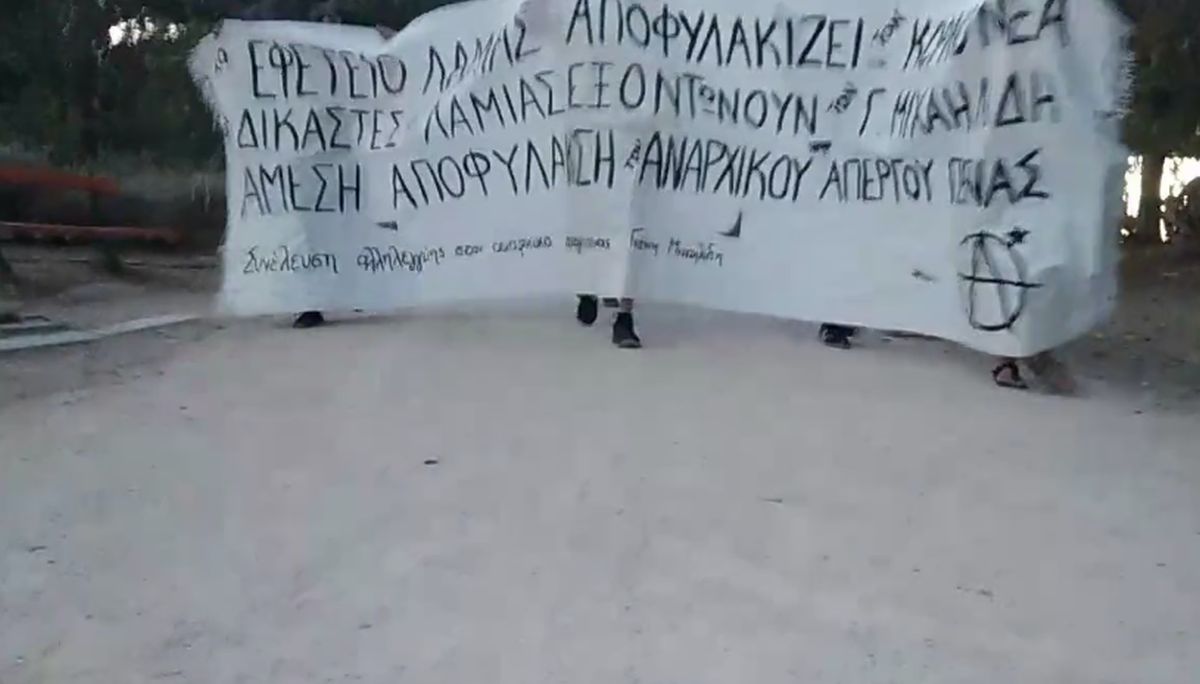 ΕΦΕΤΕΙΟ ΛΑΜΙΑΣ ΑΠΟΦΥΛΑΚΙΖΕΙ ΤΟΝ ΚΟΡΚΟΝΕΑ
ΔΙΚΑΣΤΕΣ ΛΑΜΙΑΣ ΕΞΟΝΤΩΝΟΥΝ ΤΟΝ Γ. ΜΙΧΑΗΛΙΔΗ
ΑΜΕΣΗ ΑΠΟΦΥΛΑΚΙΣΗ ΤΟΥ ΑΝΑΡΧΙΚΟΥ ΑΠΕΡΓΟΥ ΠΕΙΝΑΣ
Συνέλευση αλληλεγγύης στον απεργό πείνας Γιάννη Μιχαηλίδη